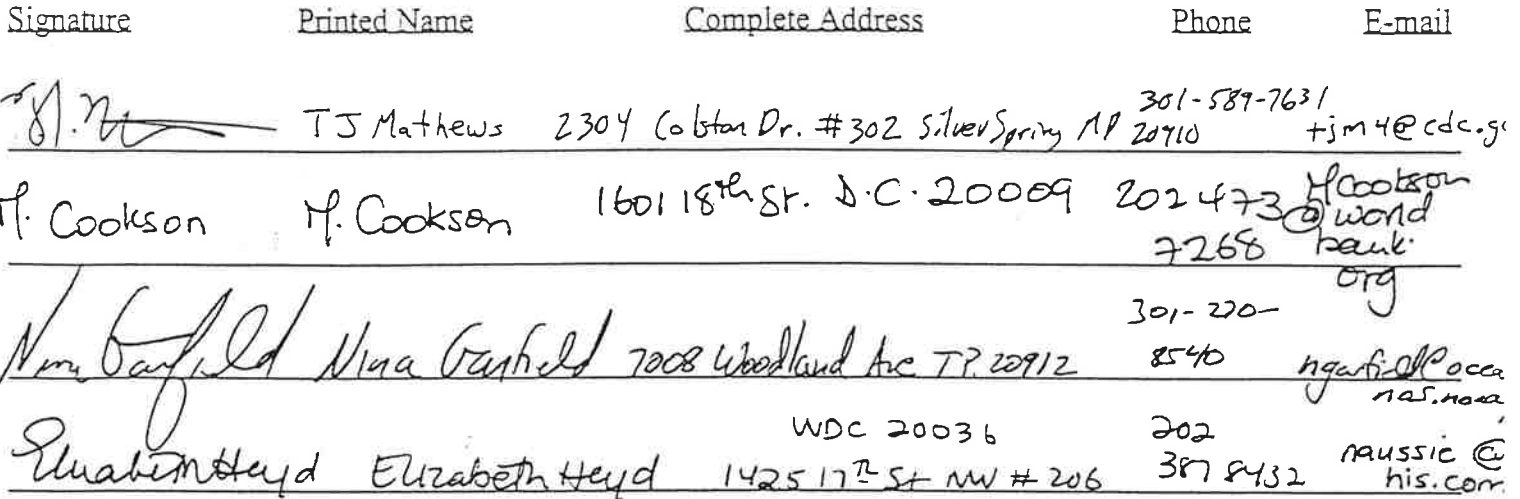 Signature Printed Name Complete Address Phone E-mail
TJ Mathews 2304 Colston Dr. #302 Silver Spring MD 20910 301-589-7631 tjm4@cdc.g
M. Cookson M. Cookson 1601 18th St. D.C. 20009 202 473 7268 MCookson@worldbank.org
Nina Garfield Nina Garfield 7008 Woodland Ave TP. 20912 301-270-8540
Elizabeth Heyd Elizabeth Heyd 1425 17th St NW #206 WDC 20036 202 387 8432 naussie@his.com